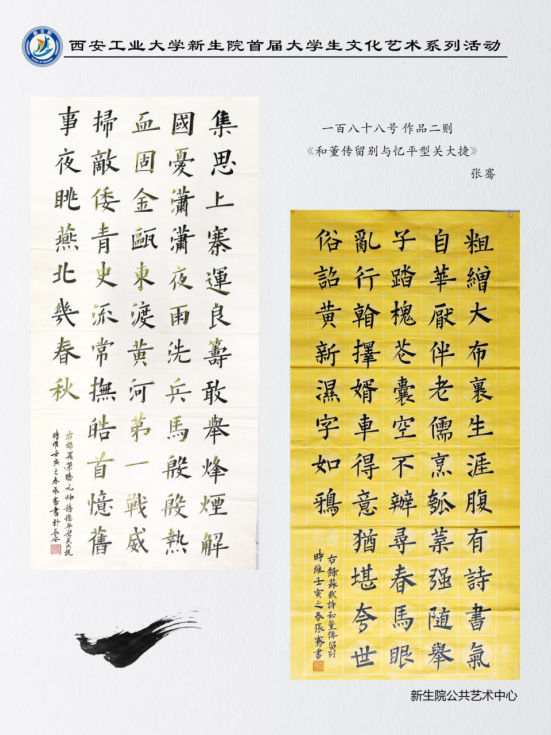 西安工业大学新生院首届大学生文化艺术系列活动
一百八十八号 作品二则
《和董传留别与忆平型关大捷》
张骞
集思上寨運良籌敢舉烽煙解
國憂瀟瀟夜雨洗兵馬殷殷熱
血固金甌東渡黃河第一戰威
掃敵倭青史流常撫皓首憶舊
事夜眺燕北幾春秋
時維壬寅之春張騫書
粗繒大布裹生涯腹有詩書氣
自華厭伴老儒烹瓠葉强随舉
子踏槐花囊空不辦尋春馬眼
亂行翰擇婿車得意猶堪夸世
俗詔黃新濕字如鴉
右錄蘇軾詩和董傳留別
時維壬寅之春張騫書
新生院公共艺术中心